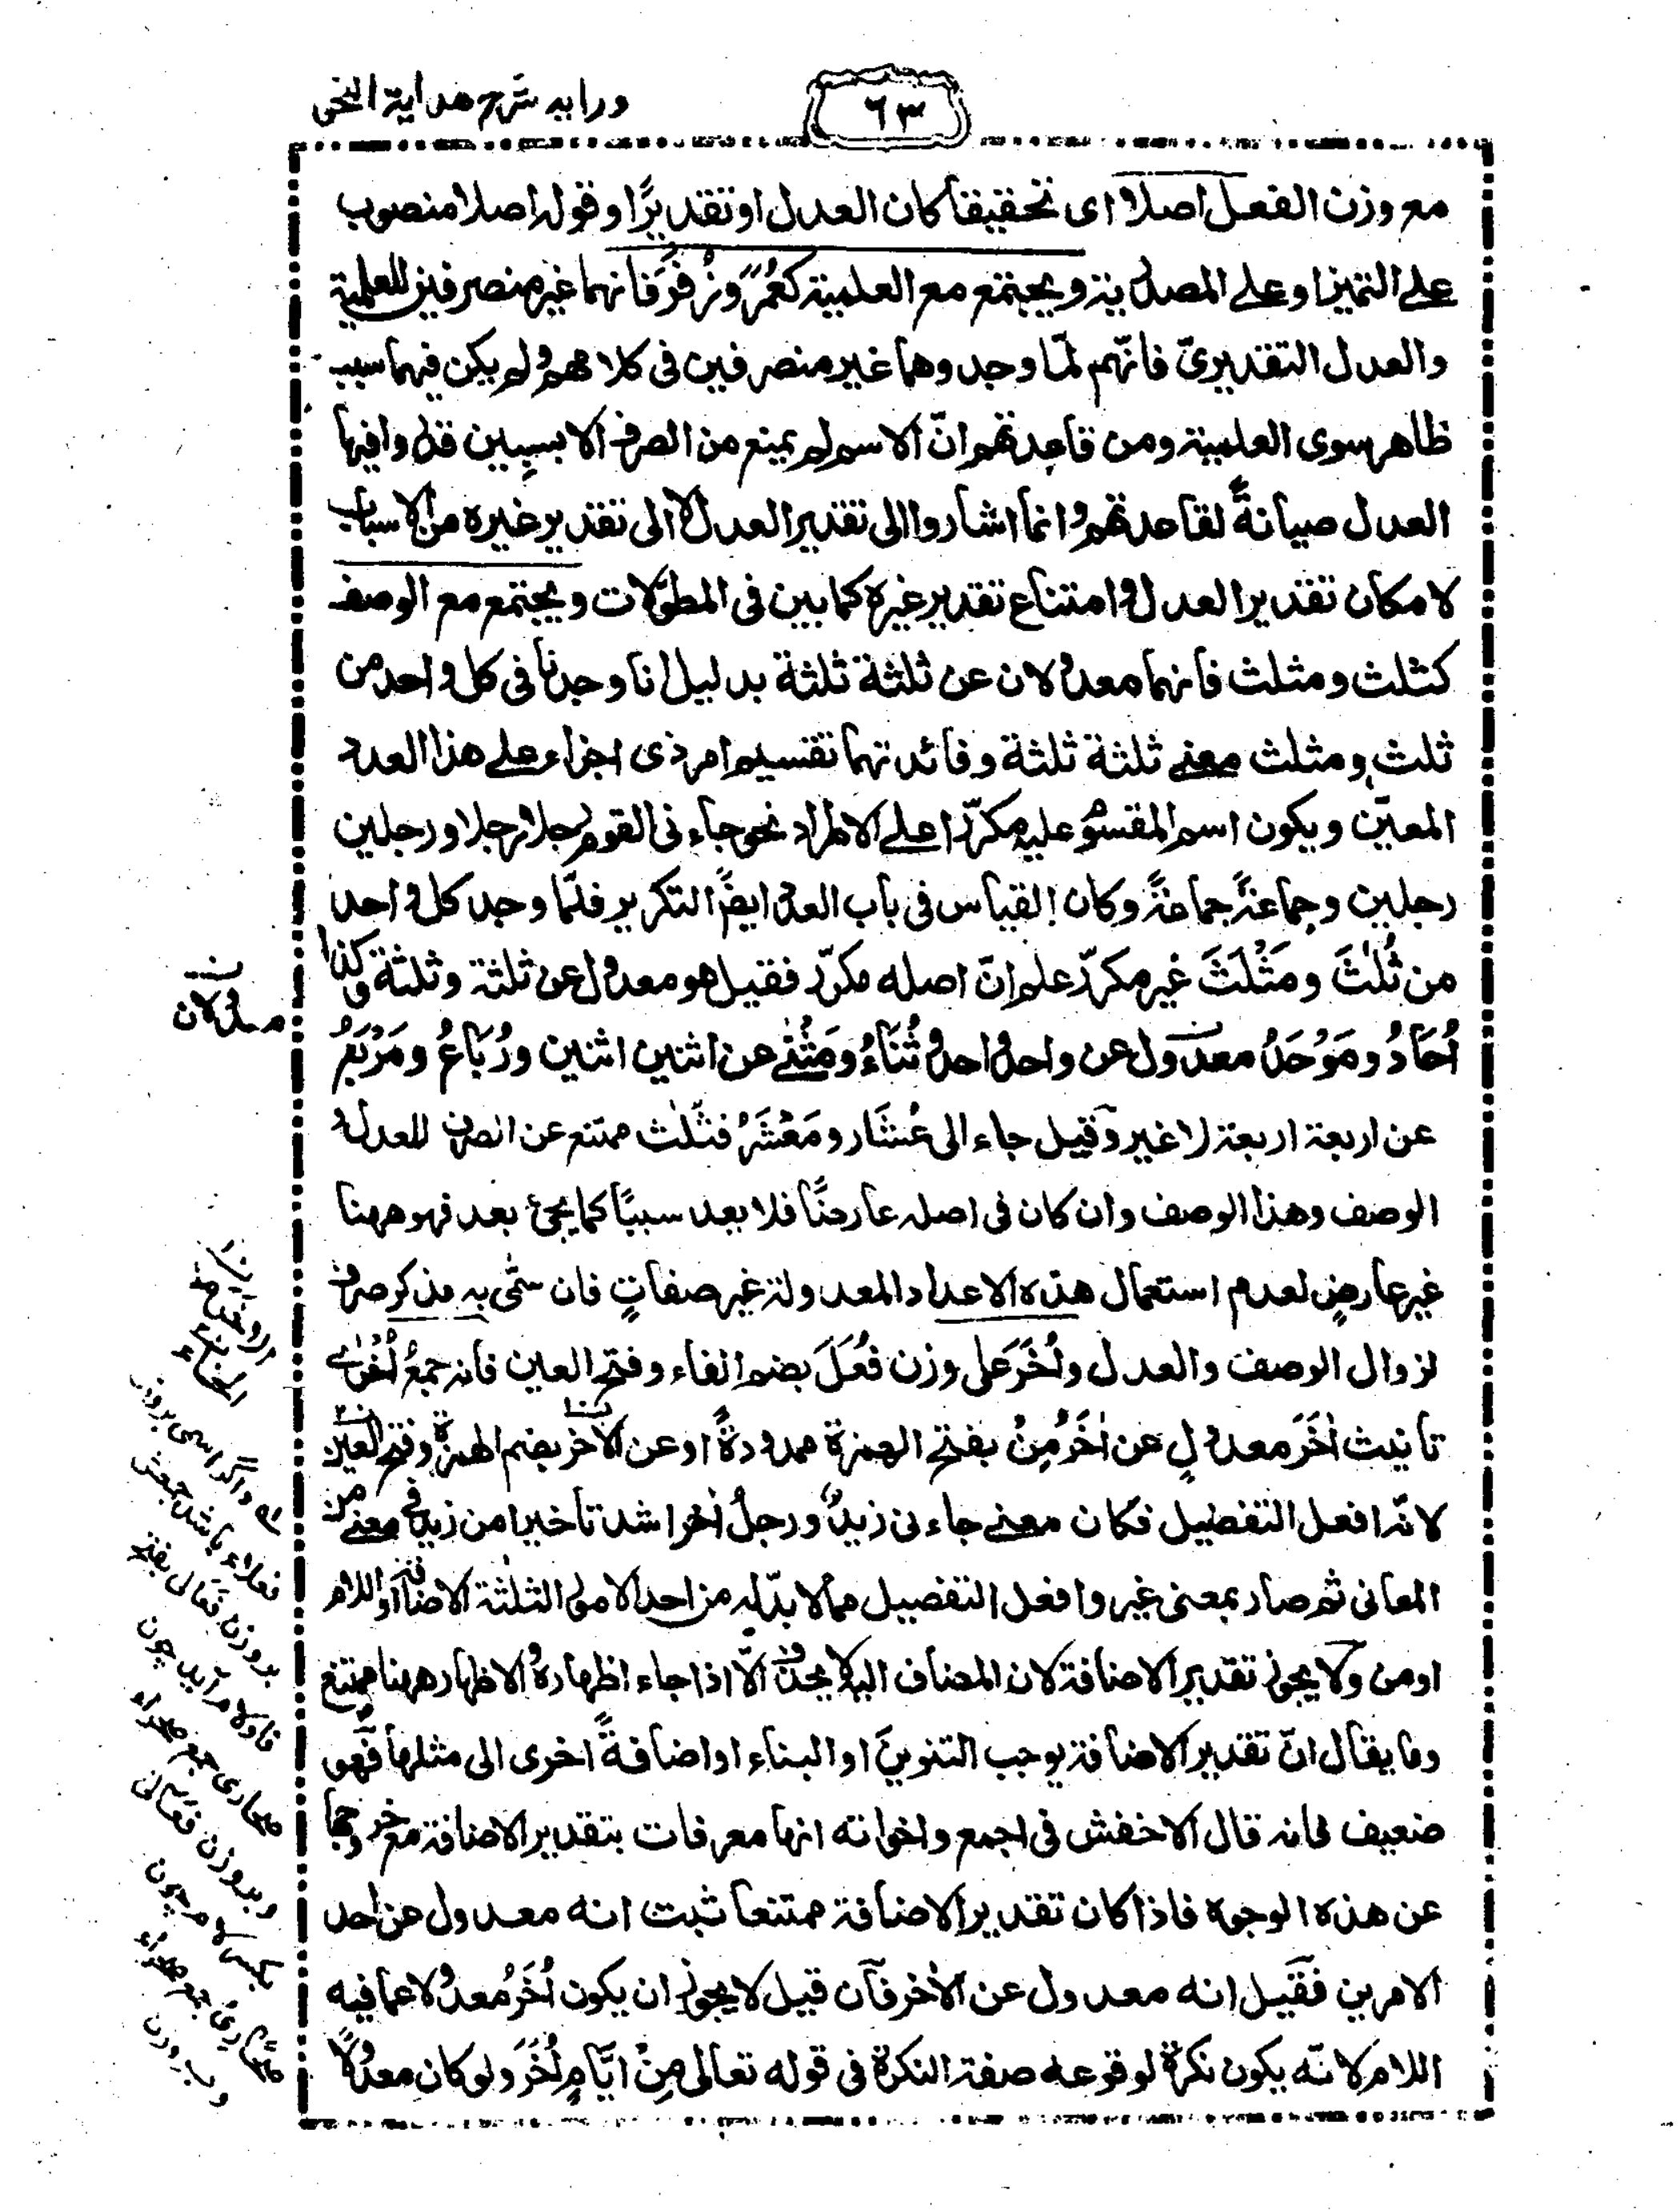 ٦٣
درايه شرح هداية النحو
مع وزن الفعل اصلا اى تحقيقاً كان العدل او تقديرًا وقوله اصلا منصوب
على التميز او على المصدرية ويجتمع مع العلمية كعُمَرَ وزُفَرَ فانهما غير منصرفين للعلمية
والعدل التقديرىّ فانّهم لمّا وجدوهما غير منصرفين فى كلامهم ولم يكن فيهما سبب
ظاهر سوى العلمية ومن قاعدتهم انّ الاسم لم يمنع من الصرف الا بسببين قدروا فيها
العدل صيانةً لقاعدتهم وانما اشاروا الى تقدير العدل لا الى تقدير غيره من الاسباب
لامكان تقدير العدل وامتناع تقدير غيره كما بين فى المطوّلات ويجتمع مع الوصف
كثلث ومثلث فانهما معدولان عن ثلثة ثلثة بدليل انا وجدنا فى كل واحد من
ثلث ومثلث معنى ثلثة ثلثة وفائدتهما تقسيم امر ذى اجزاء على هذا العدد
المعيّن ويكون اسم المقسوم عليه مكرّرا على الاطراد نحو جاءنى القوم رجلا رجلا ورجلين
رجلين وجماعةً جماعةً وكان القياس فى باب العدد ايضًا التكرير فلمّا وجد كل واحد
من ثُلٰثَ ومَثْلَثَ غير مكرر علم انّ اصله مكرّر فقيل هو معدول عن ثلثة وثلثة وكذا
اُحَادُ ومَوْحَدُ معدول عن واحد واحد وثُنَاءُ ومَثْنٰى عن اثنين اثنين ورُبَاعُ ومَرْبَعُ
عن اربعة اربعة لا غير وقيل جاء الى عُشَار ومَعْشَرُ فثُلٰث ممتنع عن الصرف للعدل و
الوصف وهذا الوصف وان كان فى اصله عارضًا فلا يعد سببًا كما يجئ بعد فهو ههنا
غير عارضٍ لعدم استعمال هذه الاعداد المعدولة غير صفاتٍ فان سمّى به مذكر صرف
لزوال الوصف والعدل واُخَرَ على وزن فُعَلَ بضم الفاء وفتح العين فانه جمعُ اُخْرٰى
تانيث اٰخَرَ معدولٍ عن اٰخَرُ مِنْ بفتح الهمزة ممدودةً او عن الاُخَر بضم الهمزة وفتح العين
لانّه افعل التفضيل فكان معنى جاءنى زيدٌ ورجلٌ اٰخر اشد تأخيرا من زيد فى معنى من
المعانى ثم صار بمعنى غير وافعل التفضيل مما لا بدّ له من احد الامور الثلثة الاضافة او اللام
او من ولا يجوز تقدير الاضافة لان المضاف اليه لا يحذف الّا اذا جاء اظهاره والاظهار ههنا ممتنع
وما يقال انّ تقدير الاضافة يوجب التنوين او البناء او اضافةً اخرى الى مثلها فهو
ضعيف فانه قال الاخفش فى اجمع واخواته انها معرفات بتقدير الاضافة مع خروجها
عن هذه الوجوه فاذا كان تقدير الاضافة ممتنعا ثبت انه معدول عن احد
الامرين فقيل انه معدول عن الاٰخر فآن قيل لا يجوز ان يكون اُخَرُ معدولا عما فيه
اللام لانّه يكون نكرة لوقوعه صفة النكرة فى قوله تعالى مِنْ ايَّامٍ اُخَرَ ولو كان معدولًا
معدولان